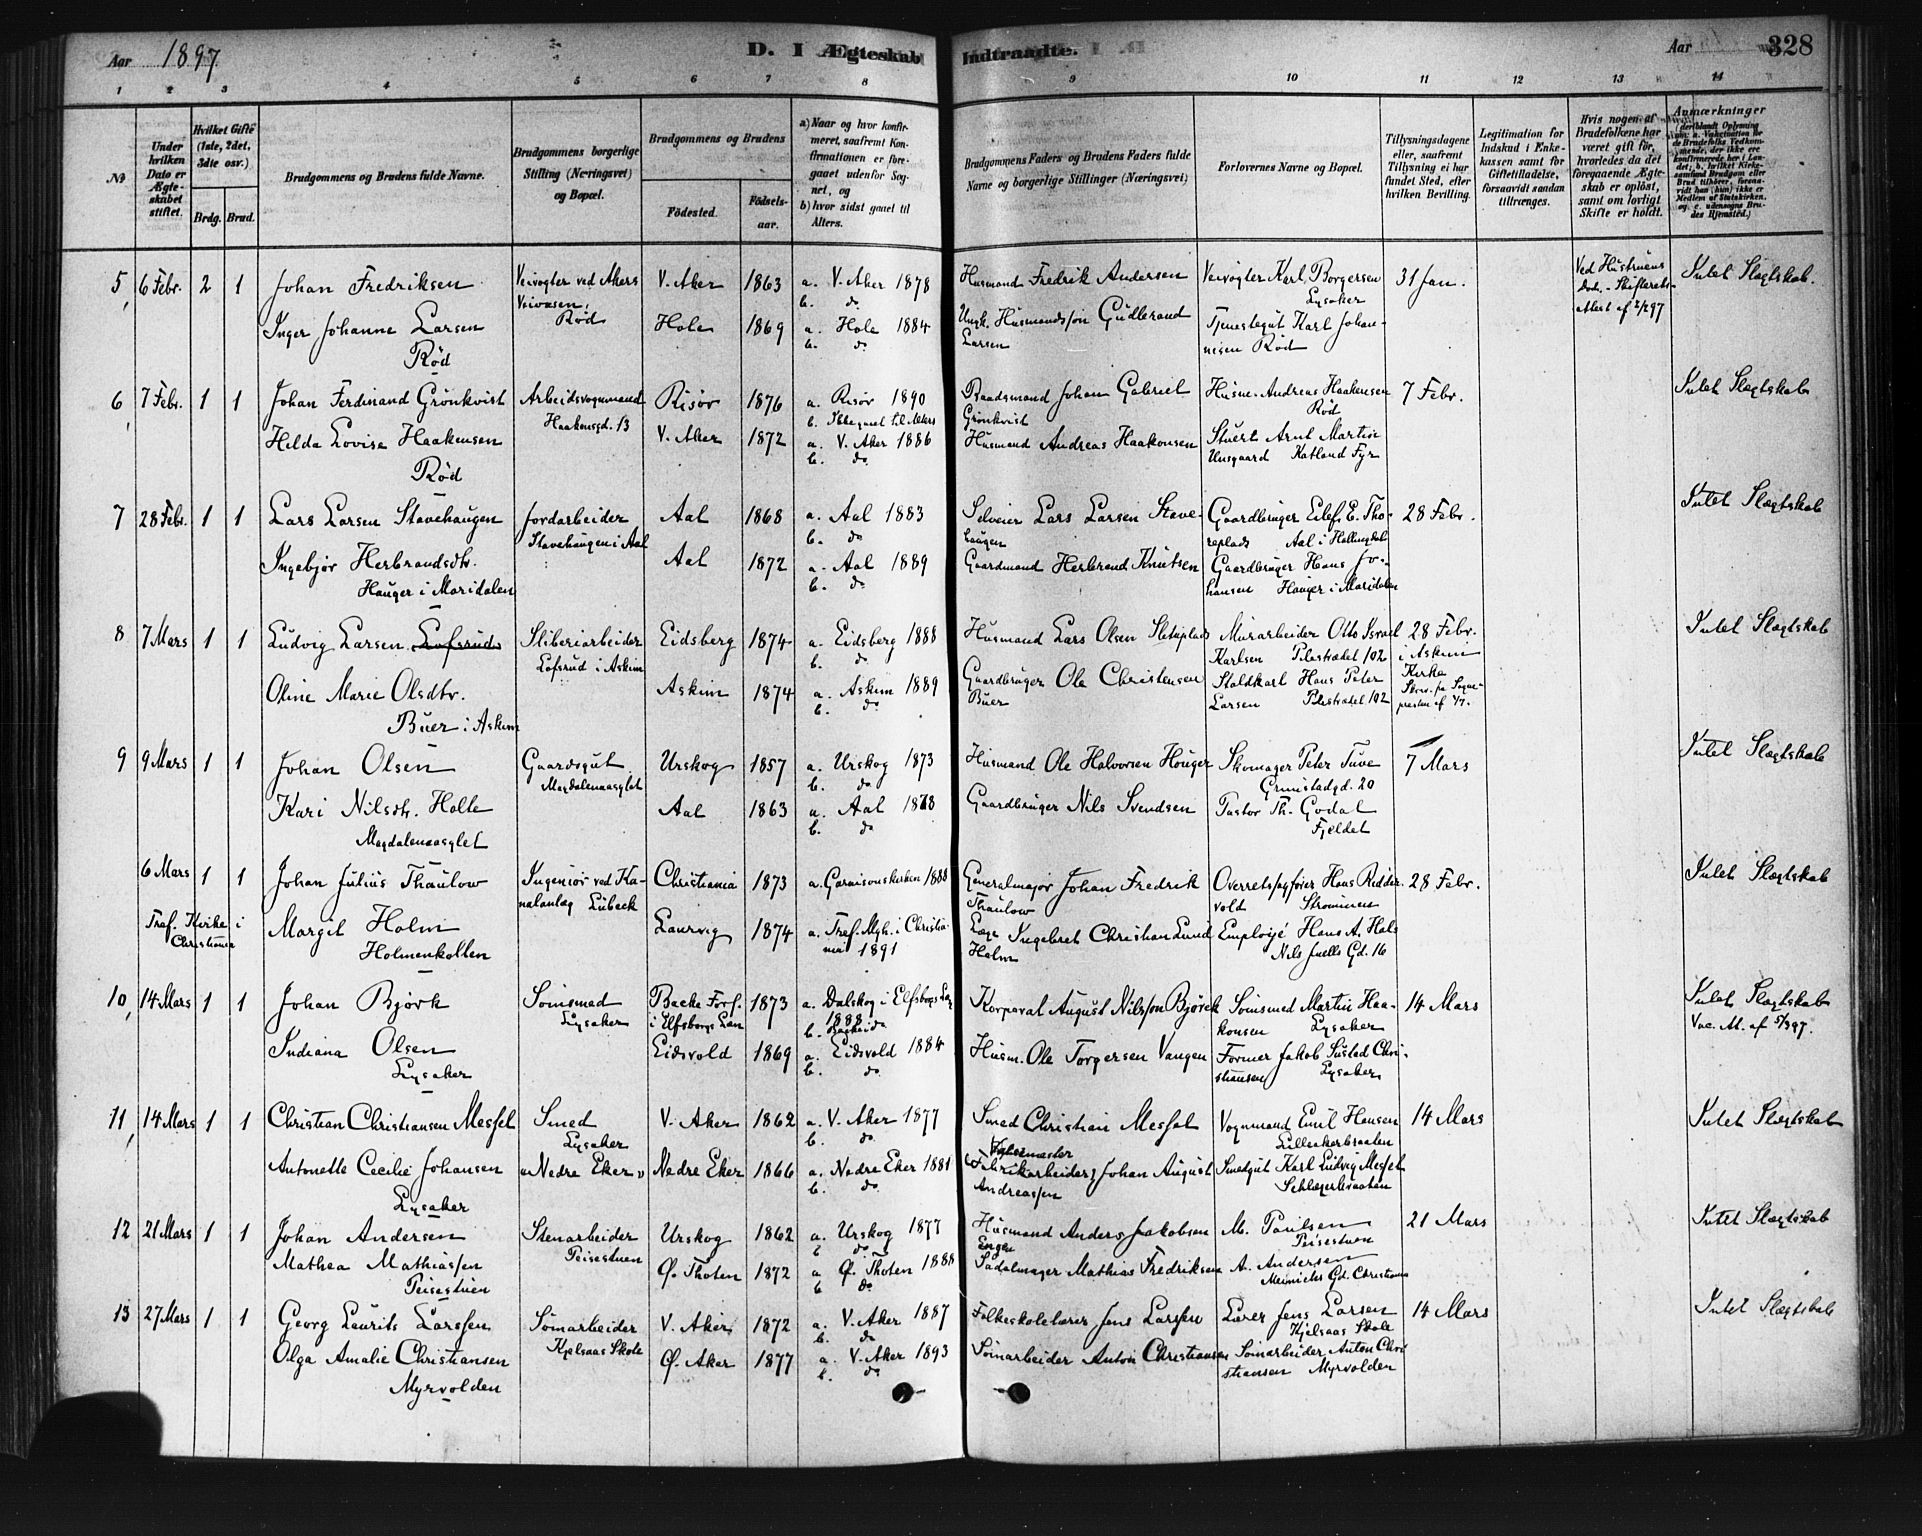 Aar 1897 D. I Ægteskab Indtraadte. Aar 328
1 2 3 4 5 6 7 8 9 10 11 12 13 14
No
Under hvilken Dato er Ægteskabet stiftet.
Hvilket Gifte (1ste, 2det, 3dte osv.)
Brdg. Brud.
Brudgommens og Brudens fulde Navne.
Brudgommens borgerlige Stilling (Næringsvei) og Bopæl.
Brudgommens og Brudens
Födested. Födsels-aar.
a) Naar og hvor konfirmeret, saafremt Konfirmationen er foregaaet udenfor Sognet, og
b) hvor sidst gaaet til Alters.
Brudgommens Faders og Brudens Faders fulde Navne og borgerlige Stillinger (Næringsvei)
Forlovernes Navne og Bopæl.
Tillysningsdagene eller, saafremt Tillysning ei har fundet Sted, efter hvilken Bevilling.
Legitimation for Indskud i Enkekassen samt for Giftetilladelse, forsaavidt saadan tiltrænges.
Hvis nogen af Brudefolkene har været gift før, hvorledes da det foregaaende Ægteskab er oplöst, samt om lovligt Skifte er holdt.
Anmærkninger
5 6 Febr. 2 1 Johan Fredriksen Veivogter ved Akers V. Aker 1863 a. V. Aker 1878 Husmand Fredrik Andersen Veivogter Karl Borgersen 31 Jan. Ved Hustruens Intet Slægtskab.
Veivæsen, b. do Lysaker Död. - Skifterets-
Rød attest af 2/2 97
Inger Johanne Larsen Hole 1869 a. Hole 1884 Ungk. Husmandssøn Gudbrand Tjenestegut Karl Johan-
Rød b. do Larsen nisen Rød
6 7 Febr. 1 1 Johan Ferdinand Grönkvist Arbeidsvognmand Risør 1876 a. Risør 1890 Baadsmand Johan Gabriel Husm. Andreas Haakensen 7 Febr. Intet Slægtskab
Haakonsgd. 13 b. Ikke gaaet til Alters Grönkvist Rød
Hilda Lovise Haakensen V. Aker 1872 a. V. Aker 1886 Husmand Andreas Haakonsen Stuert Arnt Martin
Rød b. do Unsgaard Katland Fyr
7 28 Febr. 1 1 Lars Larsen Stavehaugen Jordarbeider Aal 1868 a. Aal 1883 Selveier Lars Larsen Stave- Gaardbruger Eilef E. Tho- 28 Febr. Intet Slægtskab
Stavehaugen i Aal b. do haugen replads Aal i Hallingdal
Ingebjør Herbrandsdtr. Aal 1872 a. Aal 1889 Gaardmand Herbrand Knutsen Gaardbruger Hans Jo-
Hauger i Maridalen b. do hansen Hauger i Maridalen
8 7 Mars 1 1 Ludvig Larsen Lofsrud Sliberiarbeider Eidsberg 1874 a. Eidsberg 1888 Husmand Lars Olsen Sletuplads Murarbeider Otto Israel 28 Febr. Intet Slægtskab
Lofsrud i Askim b. do Karlsen Pilestrædet 102 i Askim
Oline Marie Olsdtr. Askim 1874 a. Askim 1889 Gaardbruger Ole Christensen Staldkarl Hans Peter Kirke
Buer i Askim b. do Buer Larsen Pilestrædet 102
9 9 Mars 1 1 Johan Olsen Gaardsgut Urskog 1857 a. Urskog 1873 Husmand Ole Halvorsen Houger Skomager Peter Tuve 7 Mars Intet Slægtskab
Magdalenaasylet b. do Grimstadgd. 20
Kari Nilsdtr. Holte Aal 1863 a. Aal 1878 Gaardbruger Nils Svendsen Pastor Th. Godal
Magdalenaasylet b. do Fjeldet
6 Mars 1 1 Johan Julius Thaulow Ingeniør ved Ka- Christiania 1873 a. Garnisonskirken 1888 Generalmajor Johan Fredrik Overretssagfører Hans Ridder- 28 Febr. Intet Slægtskab
nalanlæg Lübeck Thaulow vold Strømmen
Tref. Kirke i Christiania Margit Holm Laurvig 1874 a. Tref. Mgh. i Christia- Læge Ingebret Christian Lund Employé Hans A. Hals
Holmenkollen nia 1891 Holm Nils Juells Gd. 16
10 14 Mars 1 1 Johan Bjørk Sömsmed Backa Fors. 1873 a. Dalskog i Elfsborgs Län Korporal August Nilsson Bjørck Sömsmed Martin Haa- 14 Mars Intet Slægtskab
Lysaker i Elfsborgs Län 1888 b. do konsen Lysaker Vac. At. af 5/3 97.
Indiana Olsen Eidsvold 1869 a. Eidsvold 1884 Husm. Ole Torgersen Vangen Former Jakob Sustad Chri-
Lysaker b. do stiansen Lysaker
11 14 Mars 1 1 Christian Christiansen Messel Smed V. Aker 1862 a. V. Aker 1877 Smed Christian Messel Vognmand Emil Hansen 14 Mars Intet Slægtskab
Lysaker b. do Lilleakerbraaten
Antonette Cecilie Johansen "Nedre Eker" Nedre Eker 1866 a. Nedre Eker 1881 (Fabrikarbeider) Johan August Smedgut Karl Ludvig Messel
Lysaker b. do Andreassen
12 21 Mars 1 1 Johan Andersen Stenarbeider Urskog 1862 a. Urskog 1877 Husmand Anders Jakobsen M. Paulsen 21 Mars Intet Slægtskab
Peisestuen b. do Engen Peisestuen
Mathea Mathiassen Ø. Thoten 1872 a. Ø. Thoten 1888 Sadelmager Mathias Fredriksen A. Andersen
Peisestuen b. do Meinichs Gd. Christiania
13 27 Mars 1 1 Georg Laurits Larssen Sömarbeider V. Aker 1872 a. V. Aker 1887 Folkeskolelærer Jens Larssen Lærer Jens Larsen 14 Mars Intet Slægtskab
Kjelsaas Skole b. do Kjelsaas Skole
Olga Amalie Christiansen Ø. Aker 1877 a. V. Aker 1893 Sömarbeider Anton Christiansen Sömarbeider Anton Chri-
Myrvolden b. do stiansen Myrvolden